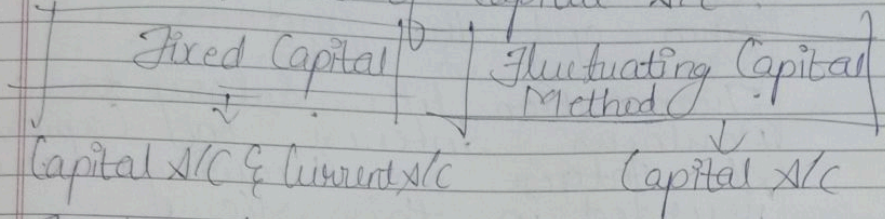 Fixed Capital
Fluctuating Capital
Method
Capital A/C & Current A/c
Capital A/C